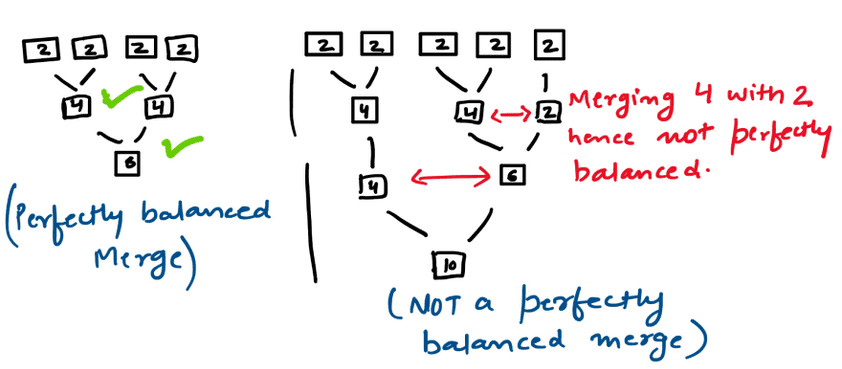 2 2 2 2
4 4
8
(Perfectly balanced
Merge)
2 2 2 2 2
4 4 2
Merging 4 with 2
hence not perfectly
balanced.
4 6
10
(NOT a perfectly
balanced merge)